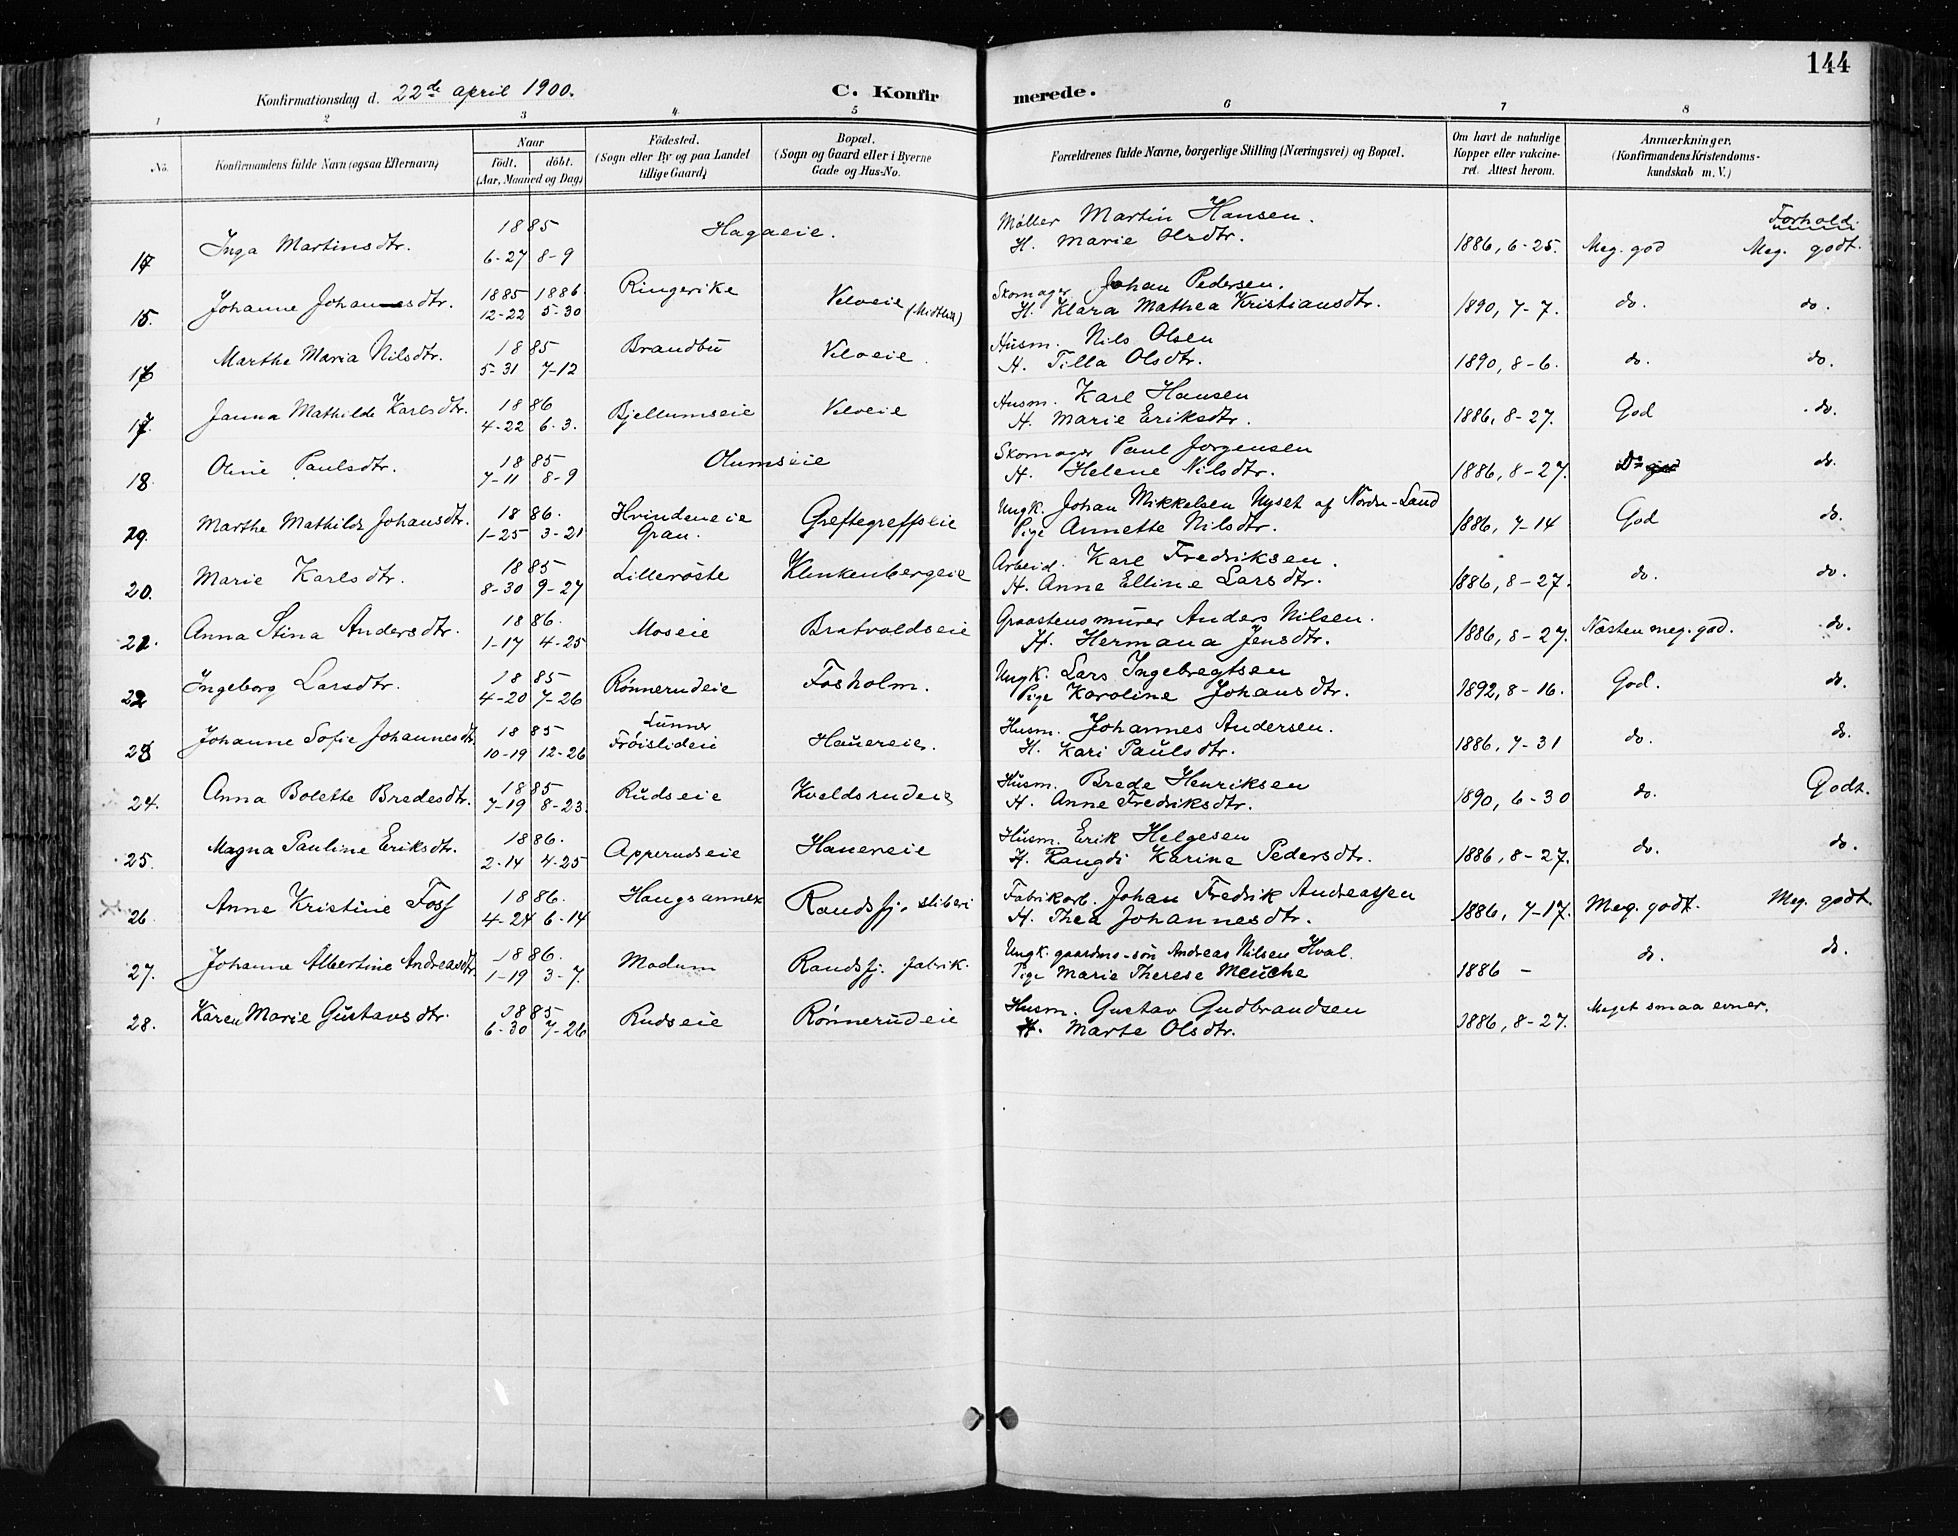 144
Konfirmationsdag d. 22de april 1900.
C. Konfirmerede.
1 2 3 4 5 6 7 8
No.
Konfirmandens fulde Navn (ogsaa Efternavn)
Naar
født. døbt.
(Aar, Maaned og Dag)
Födested.
(Sogn eller By og paa Landet
tillige Gaard)
Bopæl.
(Sogn og Gaard eller i Byerne
Gade og Hus-No.
Forældrenes fulde Navne, borgerlige Stilling (Næringsvei) og Bopæl.
Om havt de naturlige
Kopper eller vakcine-
ret. Attest herom.
Anmærkninger.
(Konfirmandens Kristendoms-
kundskab m. V.)
Forhold.
14 Inga Martinsdtr. 1885 6-27 8-9 Hagaeie. Møller Martin Hansen.
H. Marie Olsdtr. 1886, 6-25. Meg. god Meg. godt.
15. Johanne Johansdtr. 1885 12-22 1886. 5-30 Ringerike Velveie (Midtlia) Skomager Johan Pedersen.
H. Klara Mathea Kristiansdtr. 1890, 7-7. do. do.
16 Marthe Maria Nilsdtr. 1885 5-31 7-12 Brandbu Velveie. Husm. Nils Olsen
H. Tilla Olsdtr. 1890, 8-6. do. do.
17. Janna Mathilde Karlsdtr. 1886 4-22 6-3. Bjellumseie Velveie Husm. Karl Hansen
H. Marie Eriksdtr. 1886, 8-27. God do.
18. Oline Paulsdtr. 1885 7-11 8-9 Olumseie Skomager Paul Jorgensen
H. Helene Nilsdtr. 1886, 8-27. do.
19. Marthe Mathilde Johansdtr. 1886. 1-25 3-21 Hvindeneie
Gran. Greftegreffseie Ungk. Johan Mikkelsen Nyset af Nordre-Land
Pige Annette Nilsdtr. 1886, 7-14 God do.
20. Marie Karlsdtr. 1885 8-30 9-27 Lilleröste Klinkenbergeie Arbeid. Karl Fredriksen.
H. Anne Elline Larsdtr. 1886, 8-27. do. do.
21. Anna Stina Andersdtr. 1886. 1-17 4-25 Moseie Bratvoldseie Graastensmurer Anders Nilsen.
H. Hermana Jensdtr. 1886, 8-27. Næsten meg. god. do.
22 Ingeborg Larsdtr. 1885 4-20 7-26 Rønnerudeie Fosholm. Ungk. Lars Ingebregtsen
Pige Karoline Johansdtr. 1892, 8-16. God. do.
23 Johanne Sofie Johannesdtr. 1885 10-19 12-26 Lunner
Frøislideie Hauereie. Husm. Johannes Andersen.
H. Kari Paulsdtr. 1886, 7-31 do. do.
24. Anna Bolette Bredesdtr. 1885 7-19 8-23. Rudseie Kveldsrudeie Husm. Brede Henriksen
H. Anne Fredriksdtr. 1890, 6-30 do. Godt.
25. Magna Pauline Eriksdtr. 1886. 2-14 4-25 Apperudseie Hauereie Husm. Erik Helgesen
H. Rangdi Karine Pedersdtr. 1886, 8-27. do. do.
26. Anne Kristine Foss 1886. 4-24 6-14 Haugsannex Randsfj. sliberi Fabrikarb. Johan Fredrik Andreassen
H. Thea Johannesdtr. 1886, 7-17. Meg. godt. Meg. godt.
27. Johanne Albertine Andreasdtr. 1886. 1-19 3-7. Modum Randsfj. fabrik. Ungk. gaardm.-søn Andreas Nilsen Hval.
Pige Marie Therese Meuche 1886 - do. do.
28. Karen Marie Gustavsdtr. 1885 6-30 7-26 Rudseie Rønnerudeie Husm. Gustav Gudbrandsen
H. Marte Olsdtr. 1886, 8-27. Meget smaa evner.